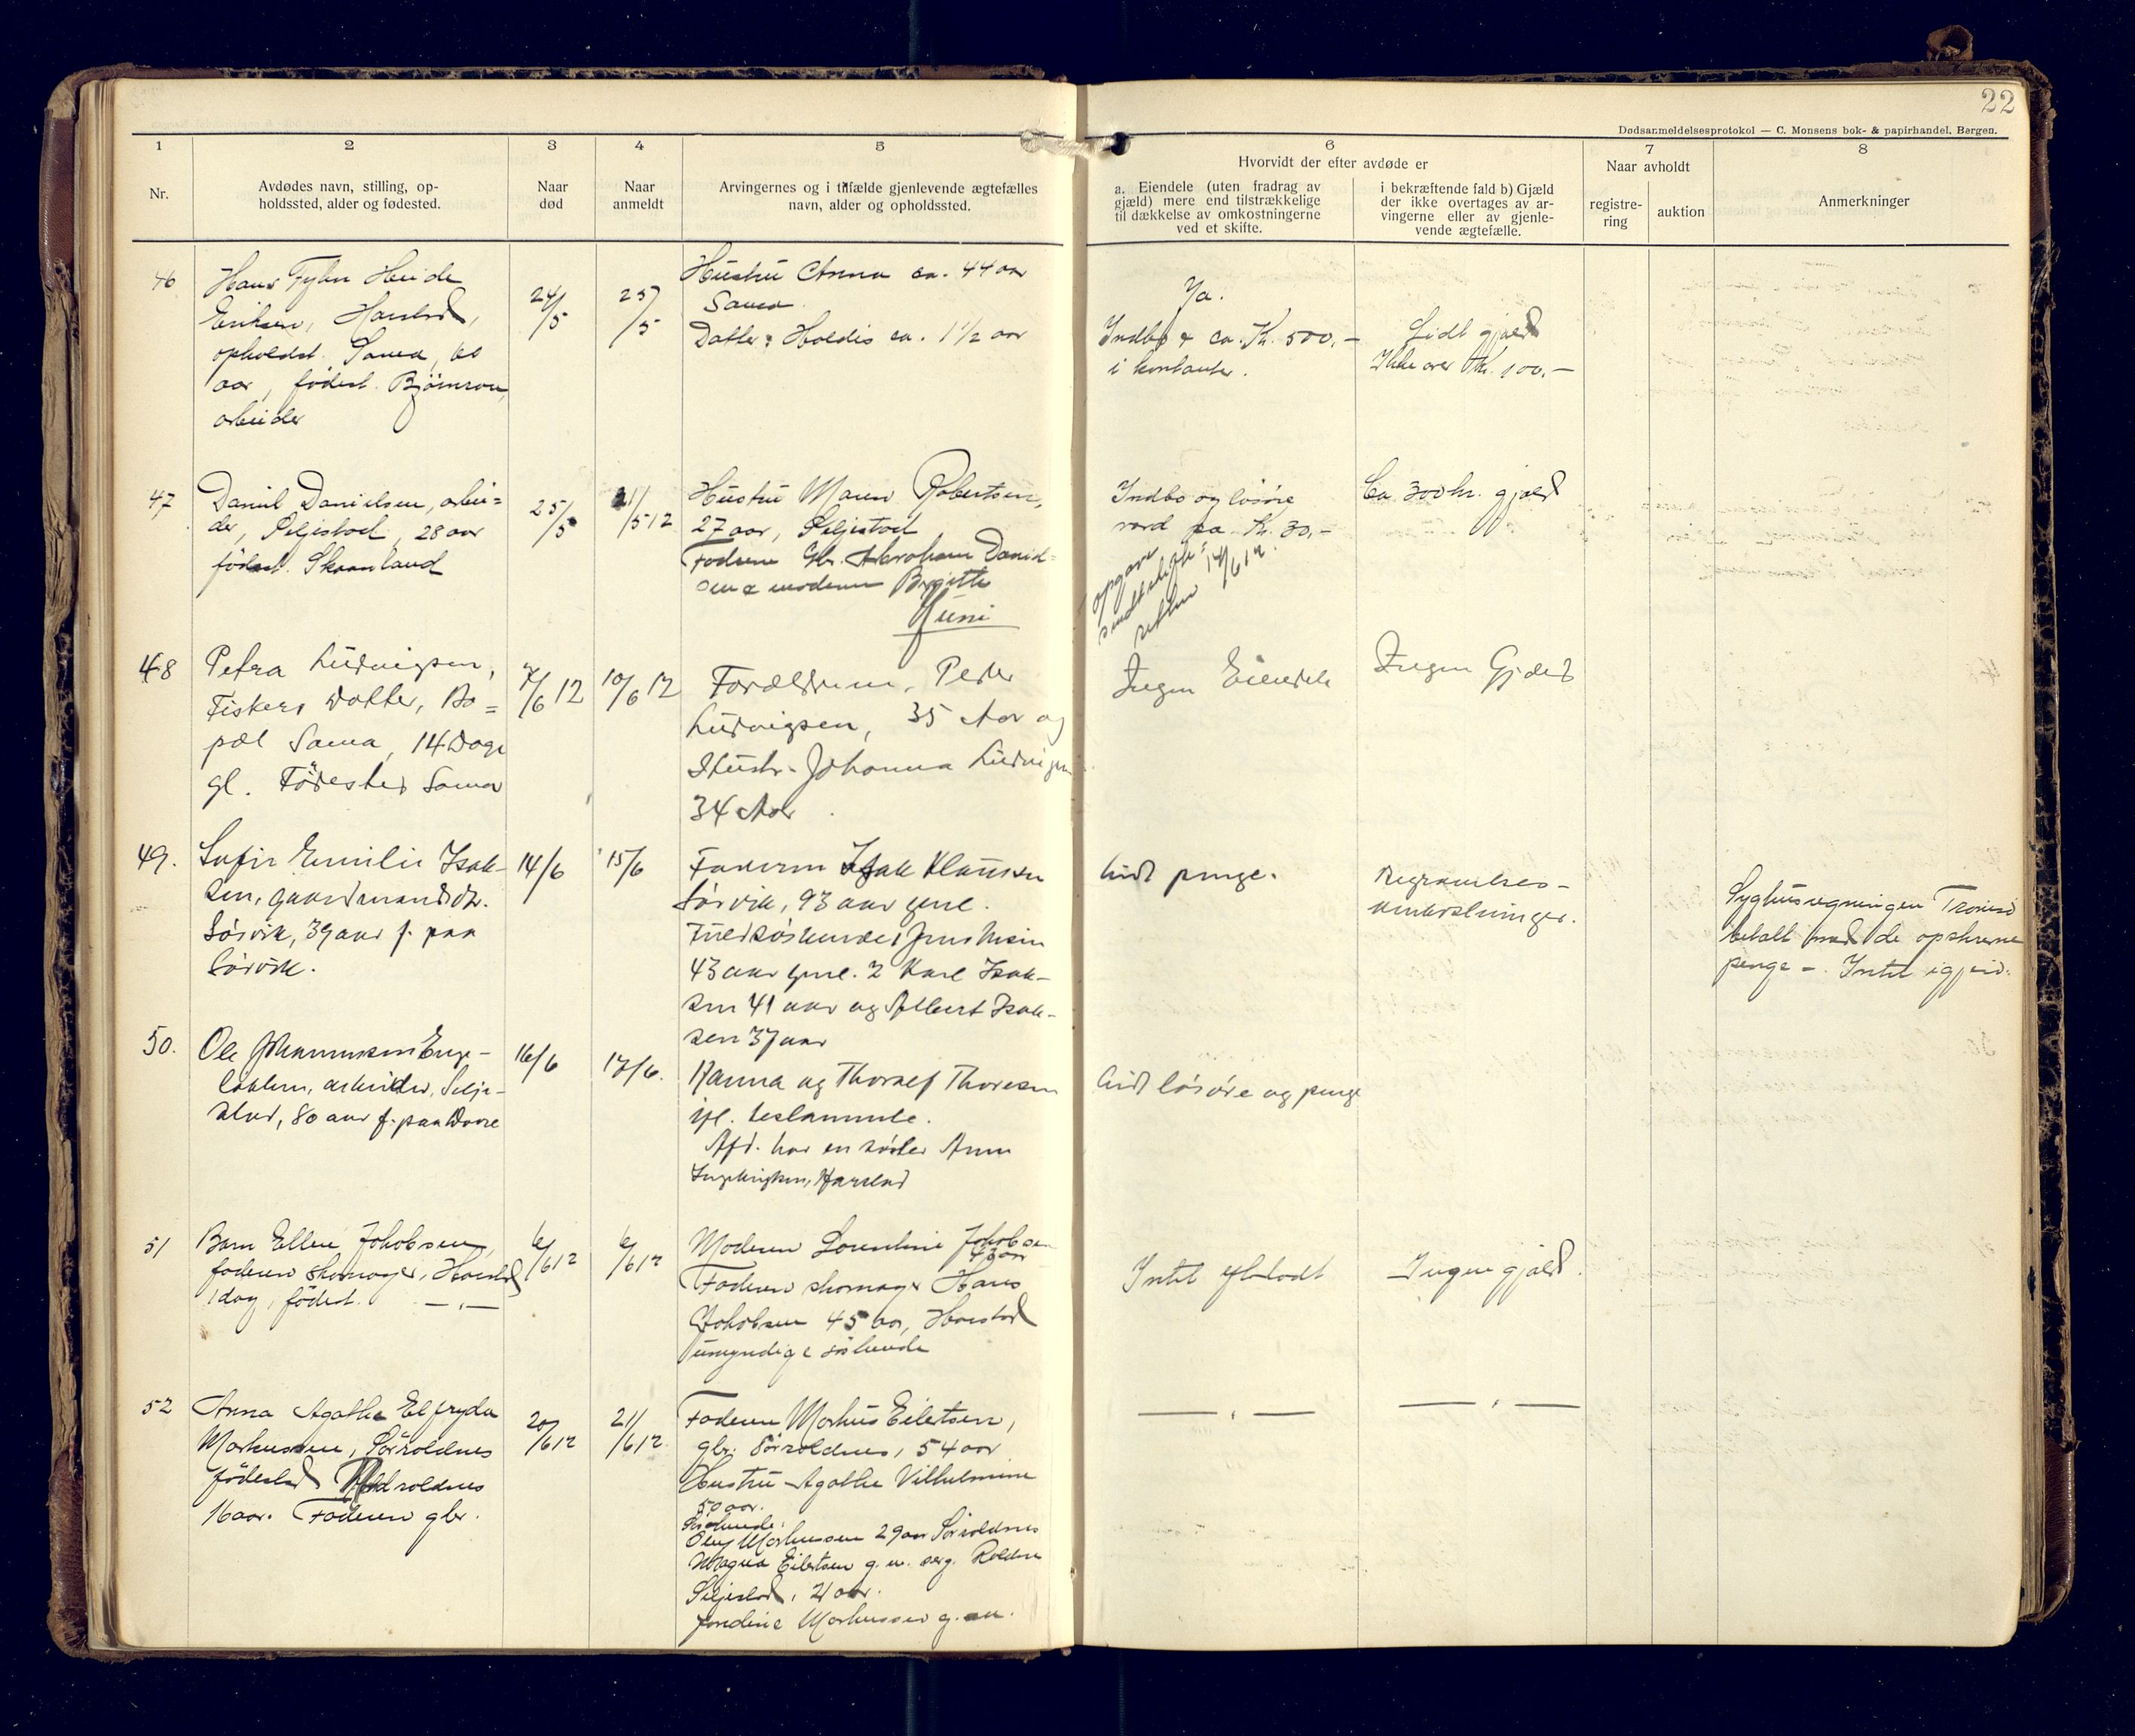 22
Dødsanmeldelsesprotokol — C. Monsens bok- & papirhandel, Bergen.
1
Nr.
2
Avdødes navn, stilling, op-
holdssted, alder og fødested.
3
Naar
død
4
Naar
anmeldt
5
Arvingernes og i tilfælde gjenlevende ægtefælles
navn, alder og opholdssted.
6
Hvorvidt der efter avdøde er
a. Eiendele (uten fradrag av
gjæld) mere end tilstrækkelige
til dækkelse av omkostningerne
ved et skifte.
i bekræftende fald b) Gjæld
der ikke overtages av ar-
vingerne eller av gjenle-
vende ægtefælle.
7
Naar avholdt
registre-
ring
auktion
8
Anmerkninger
46
Hans Heide
Eriksen, Harstad,
opholdst. Sama, 60
aar, fødest.
arbeider
24/5
25/5
Hustru Anna ca. 44 aar
Sama
Datter: Holdis ca. 1 1/2 aar
Ja.
Indbo & ca. Kr. 500,-
i kontanter.
Lidt gjæld
Ikke over Kr. 100,-
47
Daniel Danielsen, arbei=
der, Seljestad, 28 aar
fødest. Skaanland
25/5
21/5 12
Hustru Maren Robertsen,
27 aar, Seljestad
Faderen Gbr. Abraham Daniel-
sen & moderen Birgitte
Indbo og løsøre
værd ca. Kr. 30,-
opgave
14/6 12.
Ca. 300 kr. gjæld
Juni
48
Petra Ludvigsen,
Fiskers Datter, Bo=
pæl Sama, 14 Dage
gl. Fødested Sama
7/6 12
10/6 12
Forældrene, Peder
Ludvigsen, 35 Aar og
Hustr. Johanna Ludvigsen
34 Aar.
Ingen Eiendele
Ingen Gjæld
49.
Sofie Emilie Isak-
sen, gaardmandsdtr.
Sørvik, 39 aar f. paa
Sørvik.
14/6
15/6
Faderen Isak Klausen
Sørvik, 93 aar gml.
43 aar gml. 2 Karl Isak-
sen 41 aar og Albert Isak-
sen 37 aar
Lidt penge.
Begravelses-
omkostninger.
Syghusregningen Tromsø
betalt med de opskrevne
penge -. Intet igjen.
50.
Ole Johannesen Enge-
bakken, arbeider, Selje-
stad, 80 aar f. paa
16/6
17/6.
Hanna og Thoralf Thoresen
ifl. testamente.
Afd. har en søster Anne
Ingebrigtsen, Harstad
Lidt løsøre og penge
51
Barn Ellen Jakobsen,
faderen skomager, Harstad
1 dag, fødest. —"—
6/6 12
6/6 12
Moderen Lorentine Jakobsen
43 aar
Faderen skomager Hans
Jakobsen 45 aar, Harstad
umyndige søskende
Intet efterladt
Ingen gjæld.
52
Anna Agathe Elfryda
Markussen, Sørroldnes
fødested roldnes
16 aar. Faderen gbr.
20/6 12
21/6 12
Faderen Markus Eilertsen,
gbr. Sørroldnes, 54 aar
Hustru Agathe Vilhelmine
50 aar.
Søskende:
Markussen 29 aar Sørroldnes
Magna Eilertsen g. m.
Seljestad, 21 aar.
Markussen g. m.
— " —
— " —